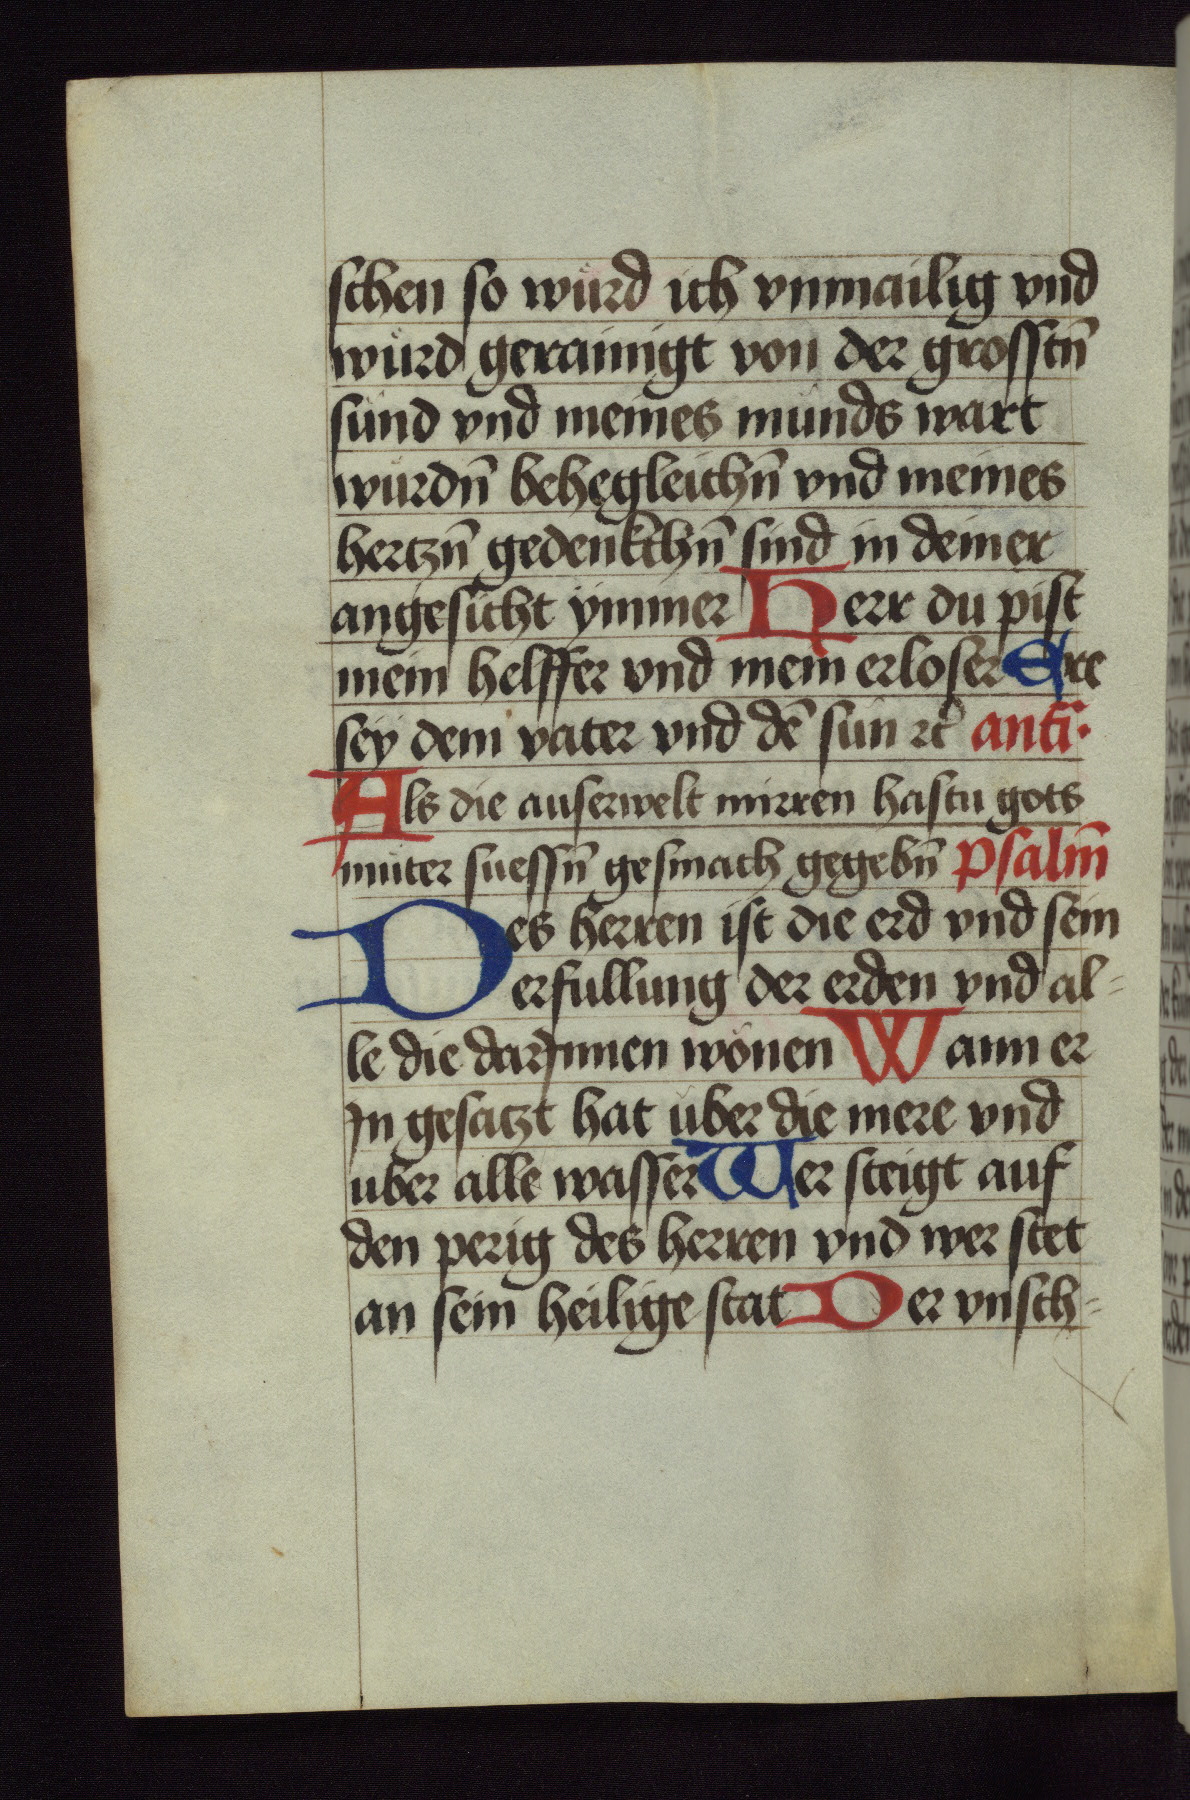 schen so würd ich vnmailig vnd
würd gerainigt von der grosstn̄
sünd vnd meines munds wart
würdn̄ behegleichn̄ vnd meines
hertzn̄ gedenkchn̄ sind in deiner
angesicht ymmer Herr du pist
mein helffer vnd mein erloser Ere
sey dem vater vnd dē sun ꝛc anti·
Als die auserwelt mirren hastu gots
muter suessn̄ gesmach gegebn̄ Psalm̄
Des herren ist die erd vnd sein
erfullung der erden vnd al-
le die darJnnen wonen Wann er
Jn gesatzt hat uber die mere vnd
uber alle wasser Wer steigt auf
den perig des herren vnd wer stet
an sein heilige stat Der vnsch-